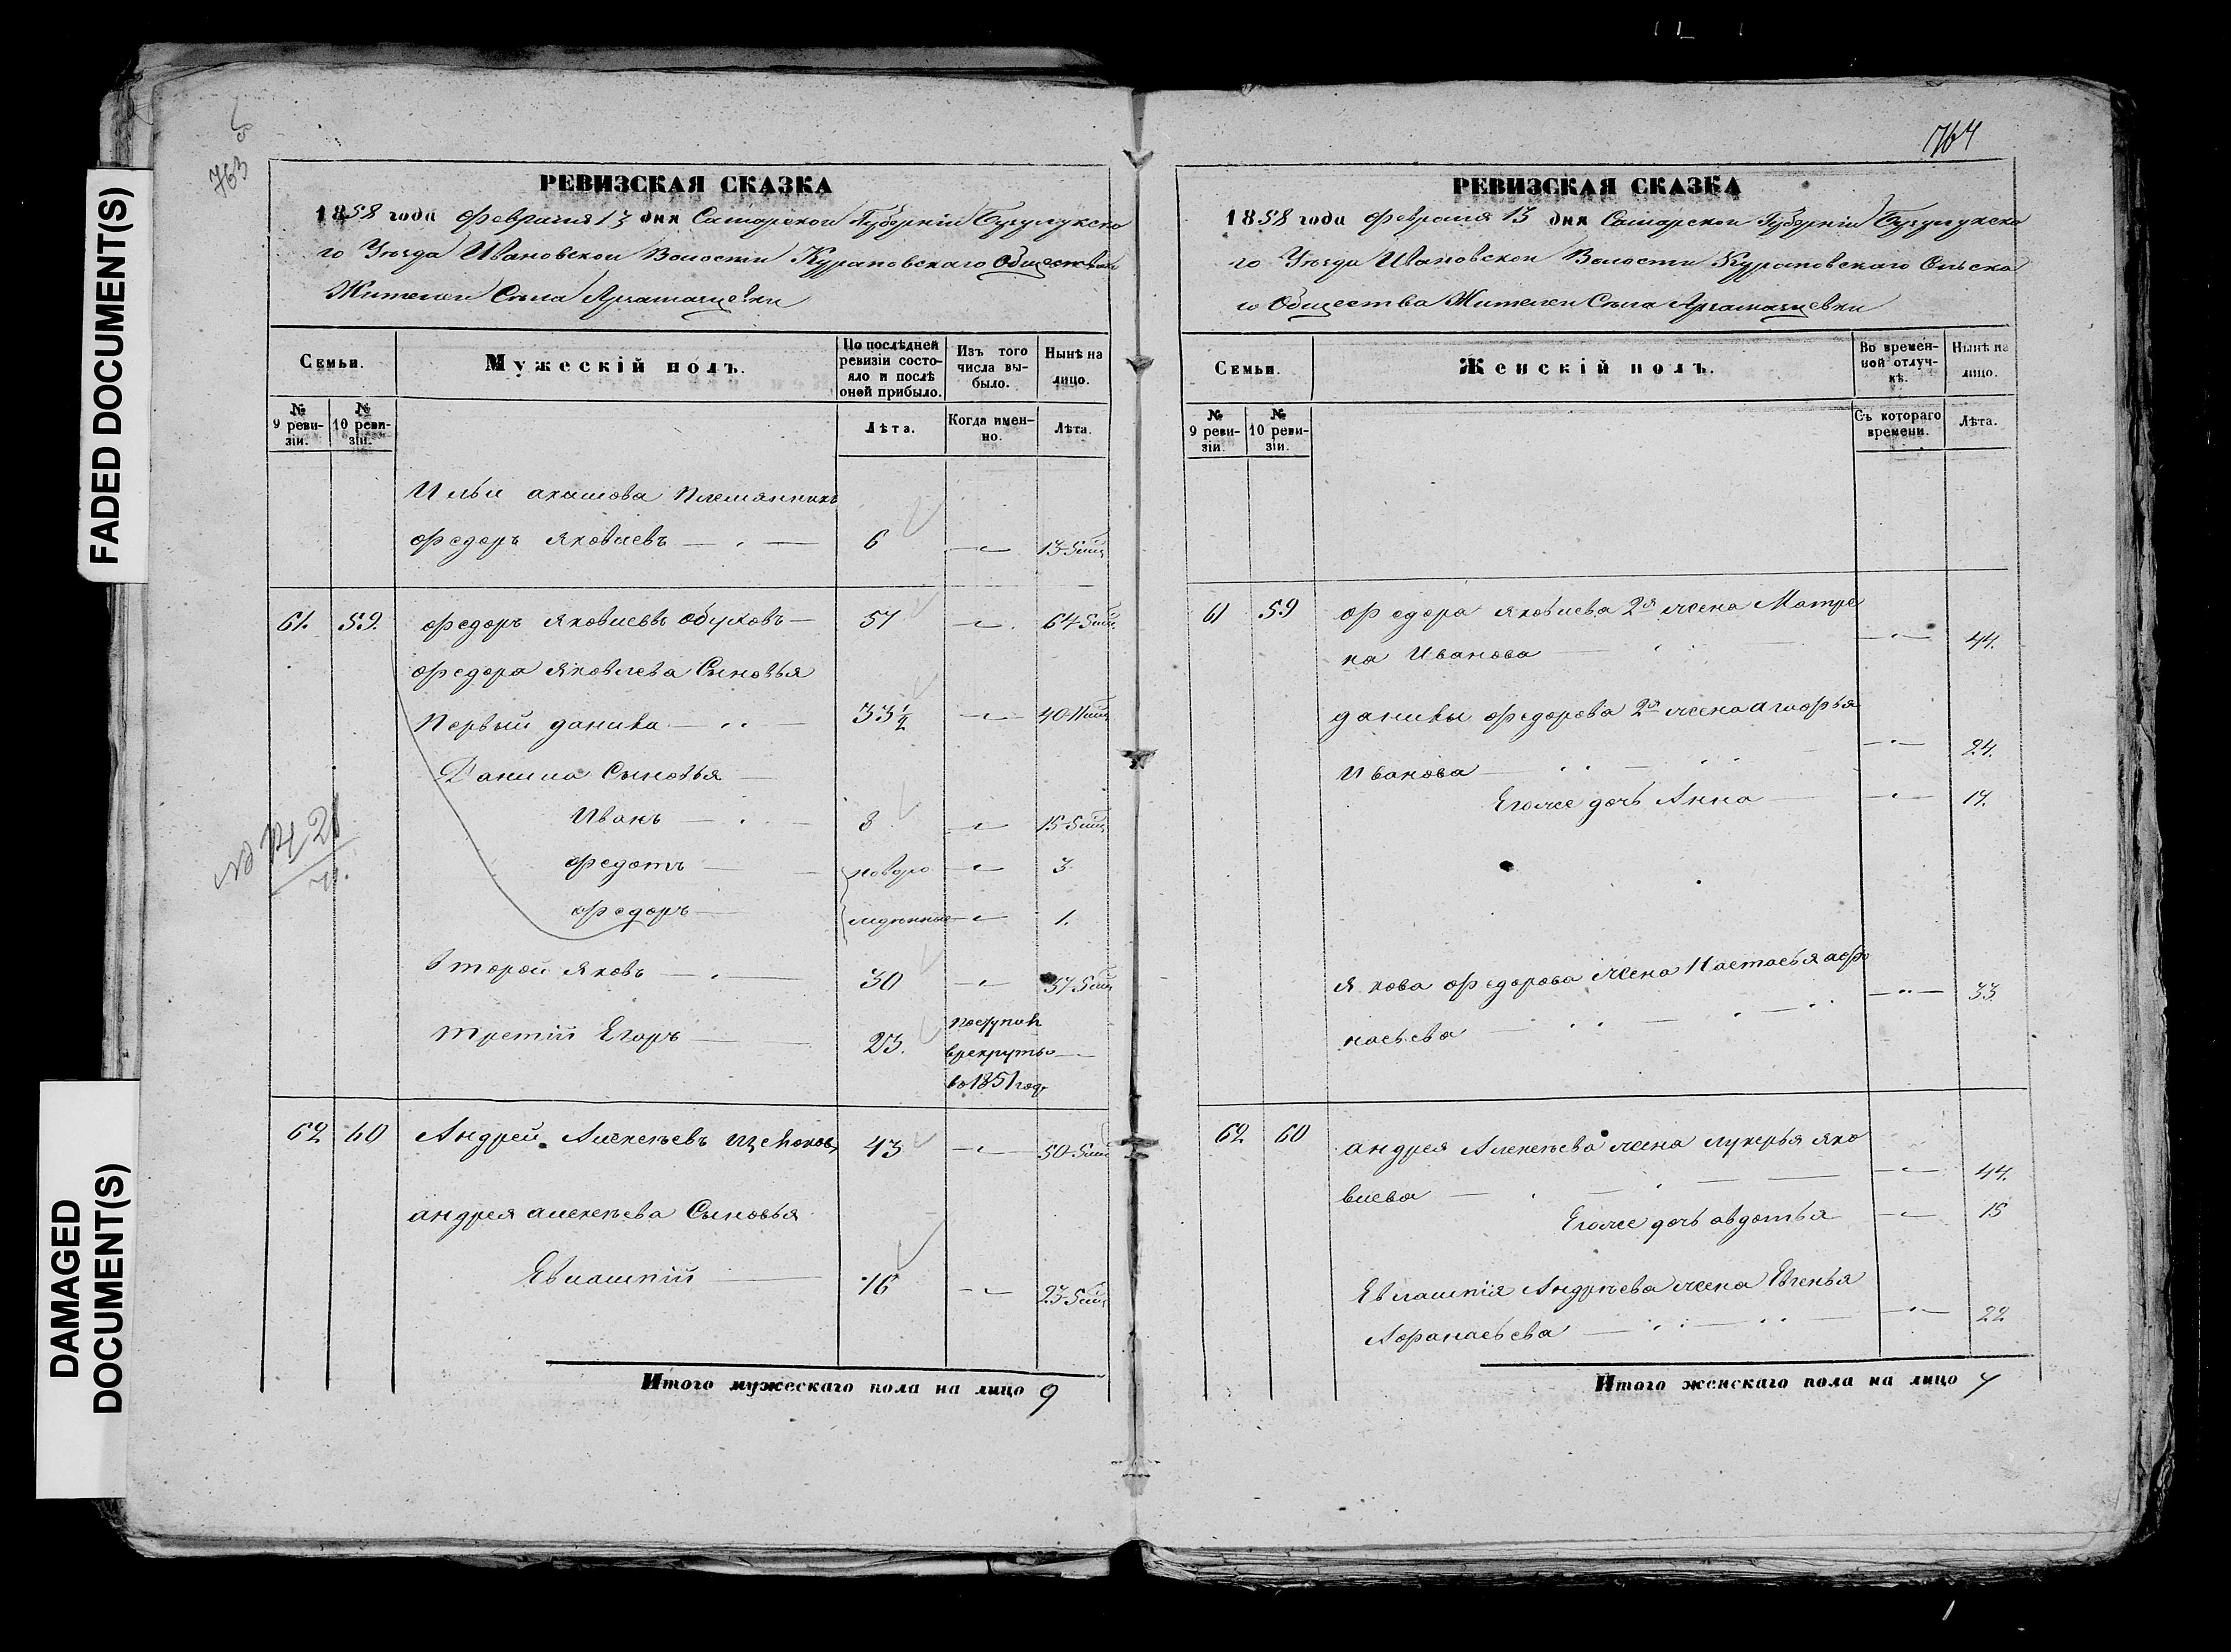 FADED DOCUMENT(S)
DAMAGED
DOCUMENT(S)
763
РЕВИЗСКАЯ СКАЗКА
1858 года Февраля 13 дня Самарской Губерніи Бузулукско
го Уезда Ивановской Волости Курановскаго Общества
Жителей Села Аргамачевки
Семьи.
Мужескій полъ.
По послѣдней ревизіи состо-
яло и послѣ оной прибыло.
Изъ того числа вы-
было.
Нынѣ на лицо.
№ 9 реви-
зіи.
№ 10 реви-
зіи.
Лѣта.
Когда имен-
но.
Лѣта.
Ильи племянникъ
Федоръ Яковлевъ 6 13-5 мц
61. 59. Федоръ Яковлевъ 57 64-5 мц.
Федора Яковлева Сыновья
Первый данила 33 1/2 40-11 мц
Данила Сыновья
Иванъ 8 15-5 мц
Федотъ новоро 3
Федоръ жденные 1.
Второй Яковъ 30 37-5 мц
третій Егоръ 23. поступилъ
врекруты
во 1851 году
62 60 Андрей Алексеевъ 43 50-5 мц
андрея алексеева Сыновья
Евлампій 16 23-5 мц
Итого мужескаго пола на лицо 9
764
РЕВИЗСКАЯ СКАЗКА
1858 года Февраля 13 дня Самарской Губерніи Бузулукско
го Уезда Ивановской Волости Курановскаго Сельско
го Общества Жителей Села Аргамачевки
Семьи.
Женскій полъ.
Во времен-
ной отлуч-
кѣ.
Нынѣ на лицо.
№ 9 реви-
зіи.
№ 10 реви-
зіи.
Съ котораго времени.
Лѣта.
61 59 Федора Яковлева 2я жена Матре
на Иванова 44.
данилы Федорова 2я жена агафья
Иванова 24.
Егоже дочь Анна 17.
Якова Федорова жена Настасья афо
насьева 33
62 60 андрея Алексеева жена лукерья яко
влева 44.
Егоже дочь авдотья 15
Евлампія Андреева жена Евгенья
Афанасьева 22
Итого женскаго пола на лицо 7